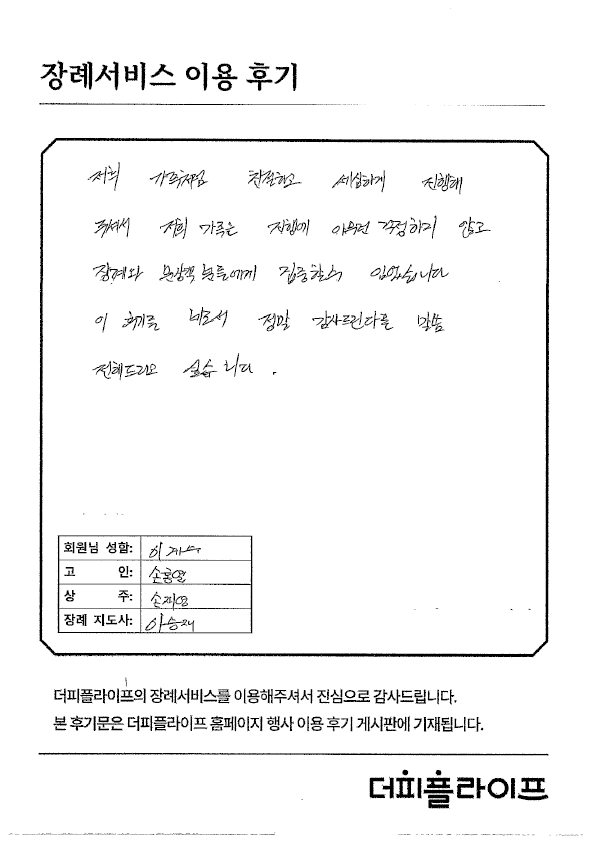 장례서비스 이용 후기
저희 가족처럼 친절하고 세심하게 진행해
주셔서 저희 가족은 진행에 아무런 걱정하지 않고
장례와 문상객 분들에게 집중할 수 있었습니다
이 후기를 빌로서 정말 감사드린다를 말씀
전해드리고 싶습니다.
회원님 성함:
고 인: 손홍열
상 주: 손재영
장례 지도사: 이승재
더피플라이프의 장례서비스를 이용해주셔서 진심으로 감사드립니다.
본 후기문은 더피플라이프 홈페이지 행사 이용 후기 게시판에 기재됩니다.
더피플라이프